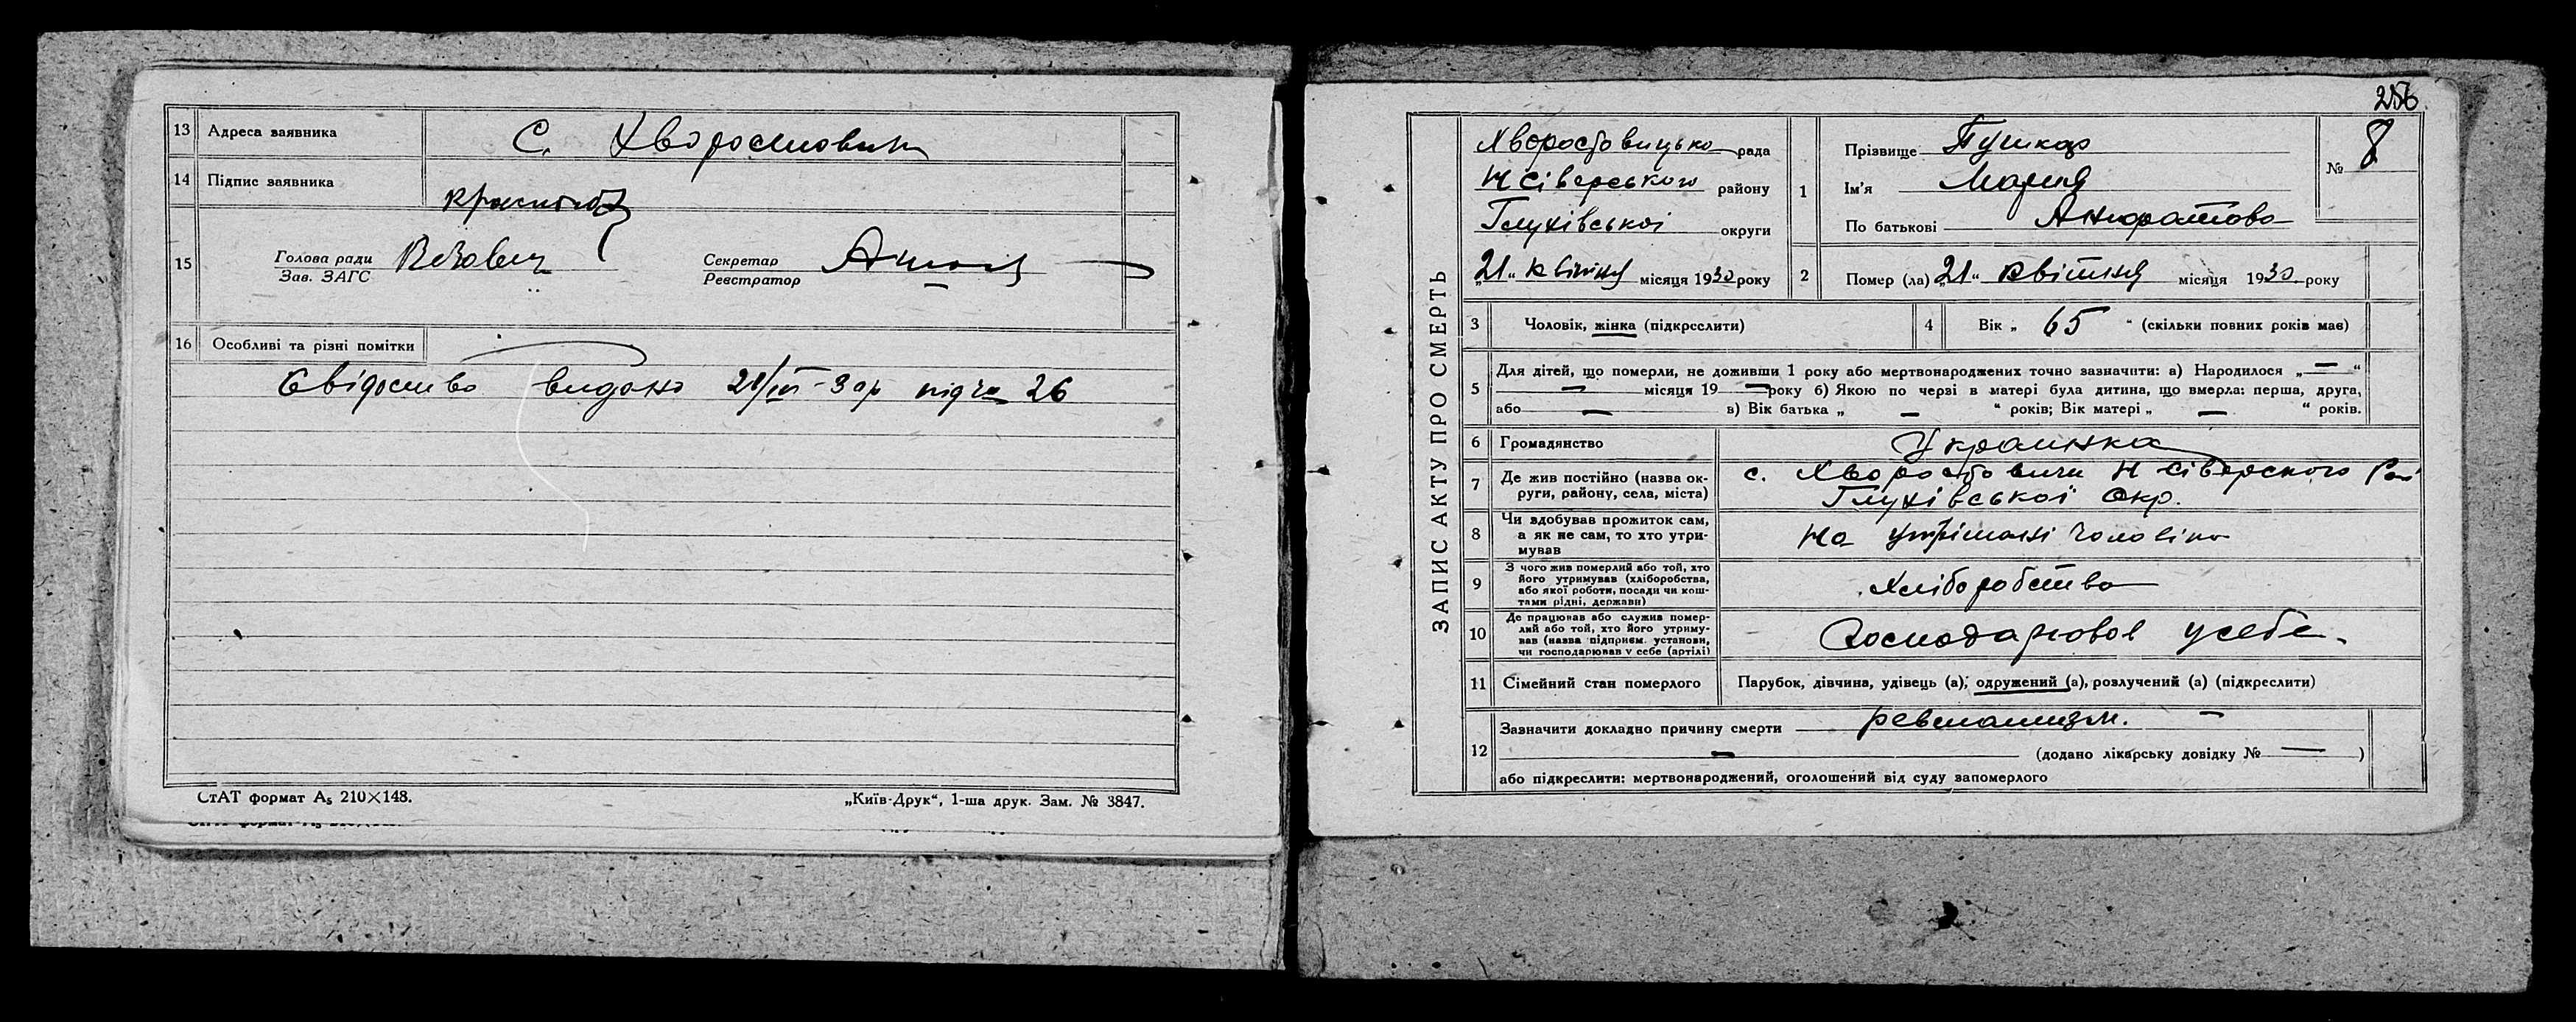 13 Адреса заявника С. Хворостовичи
14 Підпис заявника
15 Голова ради
Зав. ЗАГС
Секретар
Реєстратор
16 Особливі та різні помітки
Свідоство видано 21/IV-30р під № 26
СтАТ формат А₅ 210×148.
„Київ-Друк“, 1-ша друк. Зам. № 3847.
256
ЗАПИС АКТУ ПРО СМЕРТЬ
Хворостовицько рада
Н Сіверського району
Глухівської округи
„21„ квітня місяця 1930 року
1 Прізвище Пушкар
Ім'я Мария
По батькові
№ 8
2 Помер (ла) „21„ квітня місяця 1930 року
3 Чоловік, жінка (підкреслити)
4 Вік „ 65 “ (скільки повних років має)
5 Для дітей, що померли, не доживши 1 року або мертвонароджених точно зазначити: а) Народилося „ — “
— місяця 19 — року б) Якою по черві в матері була дитина, що вмерла: перша, друга,
або — в) Вік батька „ — “ років; Вік матері „ — “ років.
6 Громадянство Украинка
7 Де жив постійно (назва ок-
руги, району, села, міста)
с. Хворостовичи Н Сіверского Рай
Глухівської Окр.
8 Чи здобував прожиток сам,
а як не сам, то хто утри-
мував
На утрімані чоловіка
9 З чого жив померлий або той, хто
його утримував (хліборобства,
або якої роботи, посади чи кош-
тами рідні, держави)
Хліборобства
10 Де працював або служив помер-
лий або той, хто його утриму-
вав (назва підприєм. установи,
чи господарював у себе (артілі)
Господарювов усебе.
11 Сімейний стан померлого Парубок, дівчина, удівець (а), одружений (а), розлучений (а) (підкреслити)
12 Зазначити докладно причину смерти ревматизм. —
— (додано лікарську довідку № — )
або підкреслити: мертвонароджений, оголошений від суду запомерлого